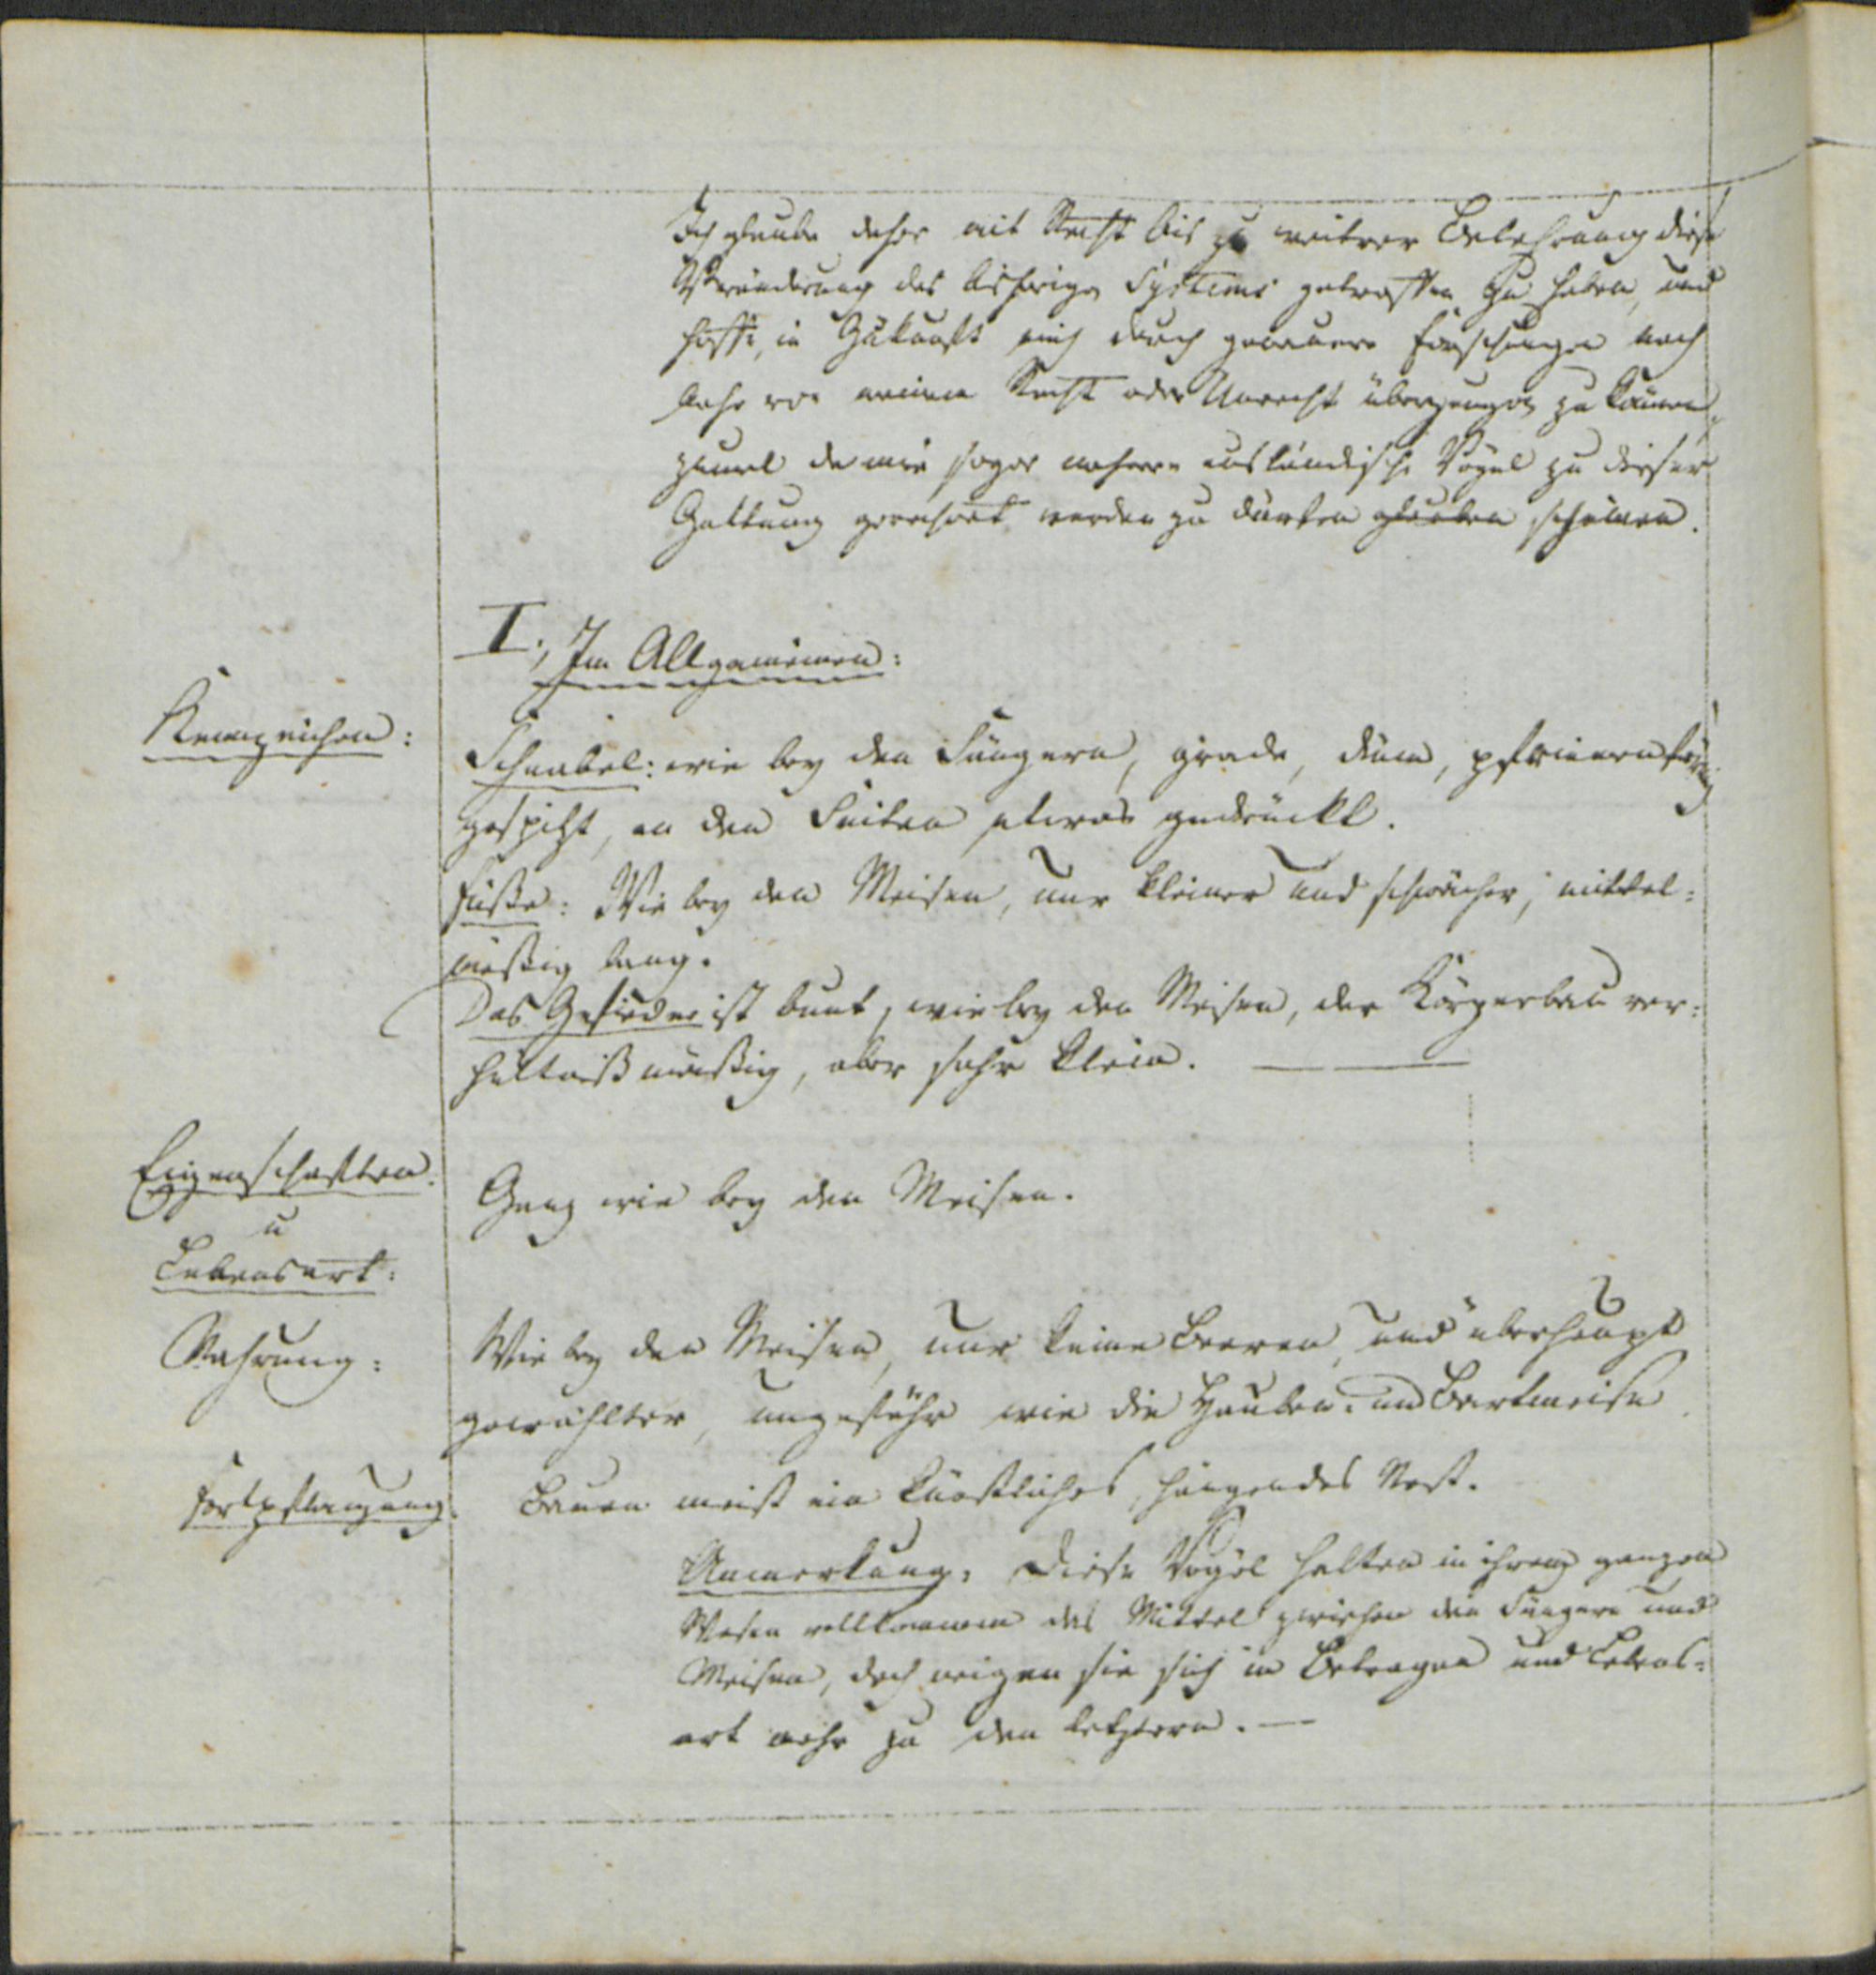 Ich glaube daher mit Recht bis zu weitrer Belehrung diese
Veränderung des bisherigen Systems getroffen zu haben, und
hoffe, in Zukunft mich durch genauere Forschungen noch
mehr von meinem Recht oder Unrecht überzeugen zu können,
zumal da mir sogar mehrere ausländische Vögel zu dieser
Gattung gerechnet werden zu dürfen glauben scheinen.
I., Im Allgemeinen:
Kennzeichen:
Schnabel: wie bey den Sängern, grade, dünn, pfriemenförmig
gespitzt, an den Seiten etwas gedrückt.
Füße: Wie bey den Meisen, nur kleiner und schwächer, mittel=
mäßig lang.
Das Gefieder ist bunt, wie bey den Meisen, der Körperbau ver=
hältnißmäßig, aber sehr klein. —
Eigenschaften
u
Lebensart:
Ganz wie bey den Meisen.
Nahrung:
Wie bey den Meisen, nur keine Beeren, und überhaupt
gewählter, ungefähr wie die Hauben= und Bartmeise.
Fortpflanzung.
Bauen meist ein künstliches, hängendes Nest.
Anmerkung: Diese Vögel halten in ihrem ganzen
Wesen vollkommen das Mittel zwischen den Sängern und
Meisen, doch neigen sie sich in Betragen und Lebens=
art mehr zu den letztern. —